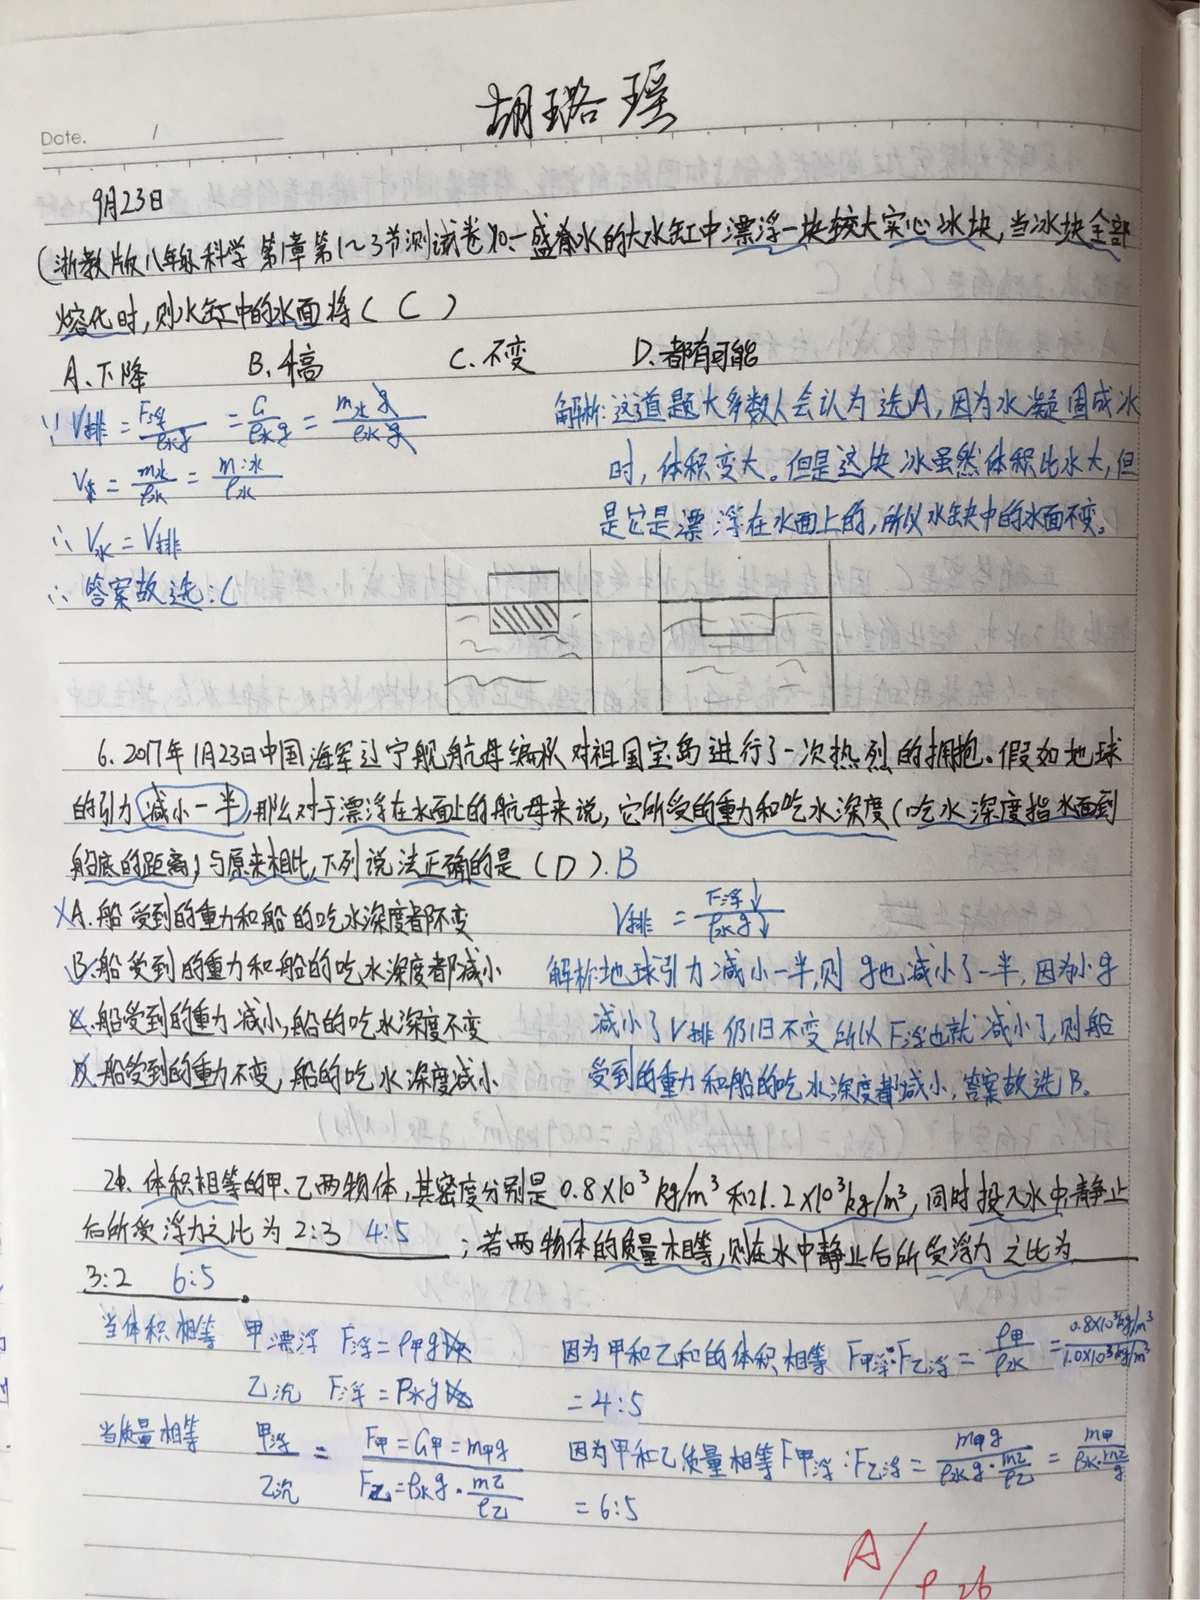 胡璐瑶
Date. 1
9月23日
(浙教版八年级科学 第1章第1~3节测试卷)10.一盛着水的大水缸中漂浮一块较大实心冰块,当冰块全部
熔化时,则水缸中的水面将( C )
A.下降 B.升高 C.不变 D.都有可能
∵ V排 = F浮/ρ水g = G/ρ水g = m冰g/ρ水g
解析:这道题大多数人会认为选A,因为水凝固成冰
V水 = m水/ρ水 = m冰/ρ水
时,体积变大。但是这块冰虽然体积比水大,但
是它是漂浮在水面上的,所以水缸中的水面不变。
∴ V水 = V排
∴ 答案故选:C
6. 2017年1月23日中国海军辽宁舰航母编队对祖国宝岛进行了一次热烈的拥抱。假如地球
的引力减小一半,那么对于漂浮在水面上的航母来说,它所受的重力和吃水深度(吃水深度指水面到
船底的距离)与原来相比,下列说法正确的是(D).B
A.船受到的重力和船的吃水深度都不变
V排 = F浮↓/ρ水g↓
B.船受到的重力和船的吃水深度都减小
解析:地球引力减小一半,则g也减小了一半,因为g
C.船受到的重力减小,船的吃水深度不变
减小了V排仍旧不变所以F浮也就减小了,则船
D.船受到的重力不变,船的吃水深度减小
受到的重力和船的吃水深度都减小,答案故选B.
24.体积相等的甲、乙两物体,其密度分别是0.8×10³kg/m³和1.2×10³kg/m³,同时投入水中,静止
后所受浮力之比为 2:3 4:5 ;若两物体的质量相等,则在水中静止后所受浮力之比为
3:2 6:5 .
当体积相等 甲漂浮 F浮=ρ甲g 因为甲和乙和的体积相等 F甲浮:F乙浮 = ρ甲/ρ水 = 0.8×10³kg/m³/1.0×10³kg/m³
乙沉 F浮=ρ水g =4:5
当质量相等 甲浮/乙沉 = F甲=G甲=m甲g/F乙=ρ水g·m乙/ρ乙 因为甲和乙质量相等F甲浮:F乙浮 = m甲g/ρ水g·m乙/ρ乙 = m甲/ρ水·m乙/g
=6:5
A/
9.26